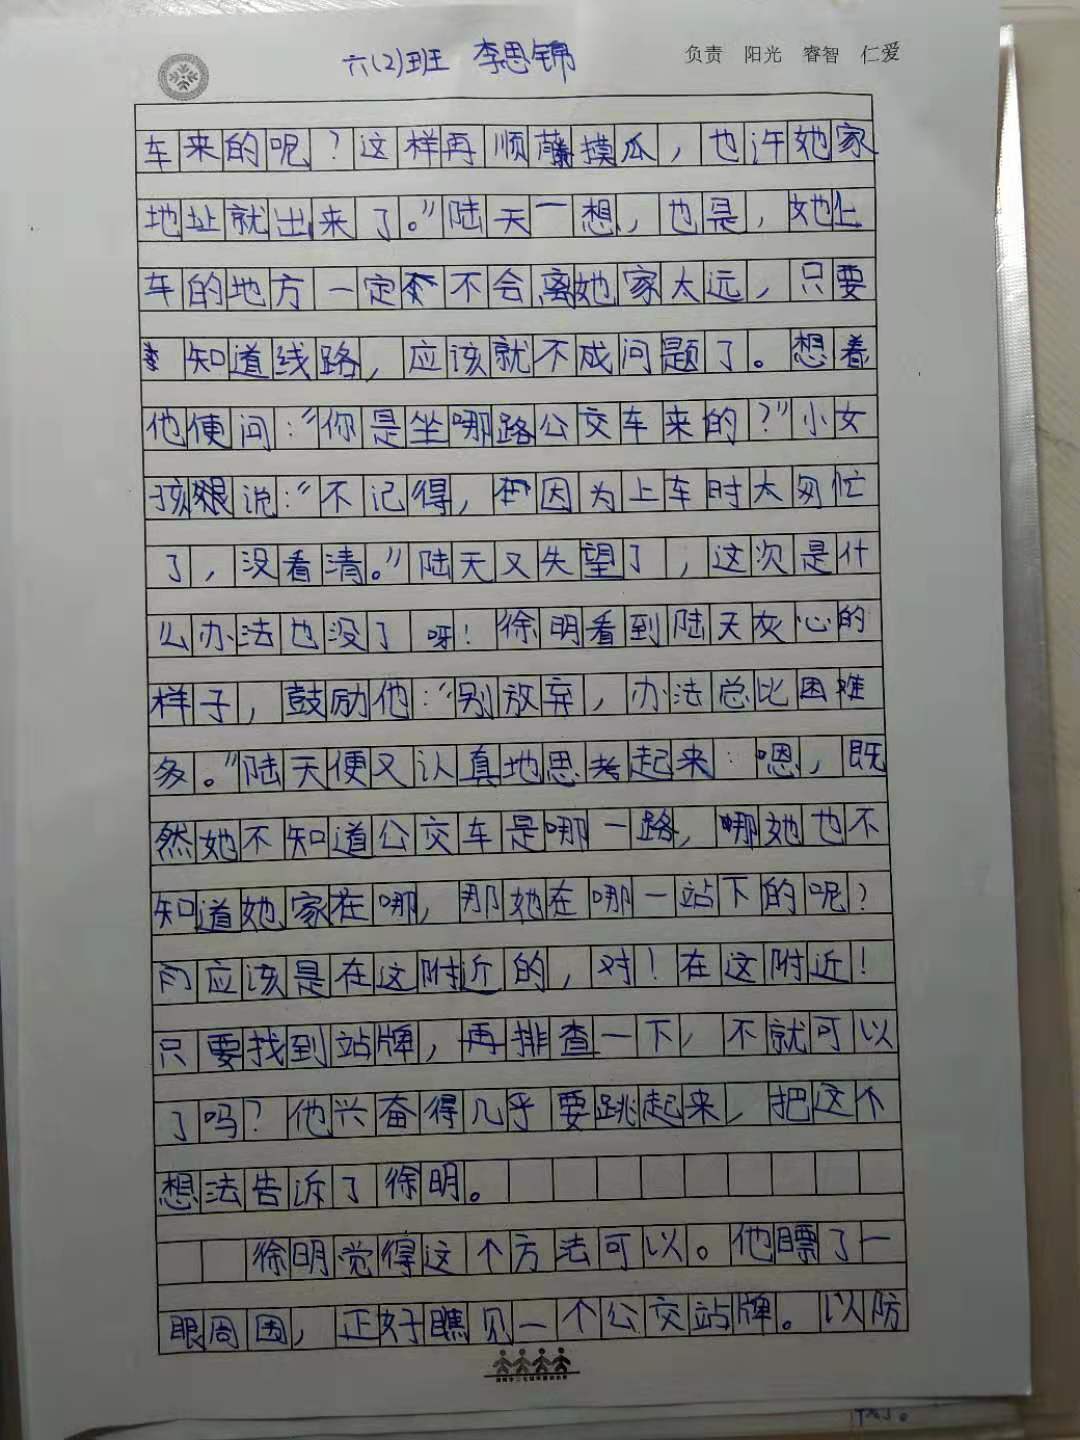 六(2)班 李思锦
负责 阳光 睿智 仁爱
车来的呢？这样再顺藤摸瓜，也许她家
地址就出来了。”陆天一想，也是，她上
车的地方一定不会离她家太远，只要
知道线路，应该就不成问题了。想着
他便问：“你是坐哪路公交车来的？”小女
孩说：“不记得，因为上车时太匆忙
了，没看清。”陆天又失望了，这次是什
么办法也没了呀！徐明看到陆天灰心的
样子，鼓励他：“别放弃，办法总比困难
多。”陆天便又认真地思考起来：嗯，既
然她不知道公交车是哪一路，哪她也不
知道她家在哪，那她在哪一站下的呢？
应该是在这附近的，对！在这附近！
只要找到站牌，再排查一下，不就可以
了吗？他兴奋得几乎要跳起来，把这个
想法告诉了徐明。
徐明觉得这个方法可以。他瞟了一
眼周围，正好瞧见一个公交站牌。以防